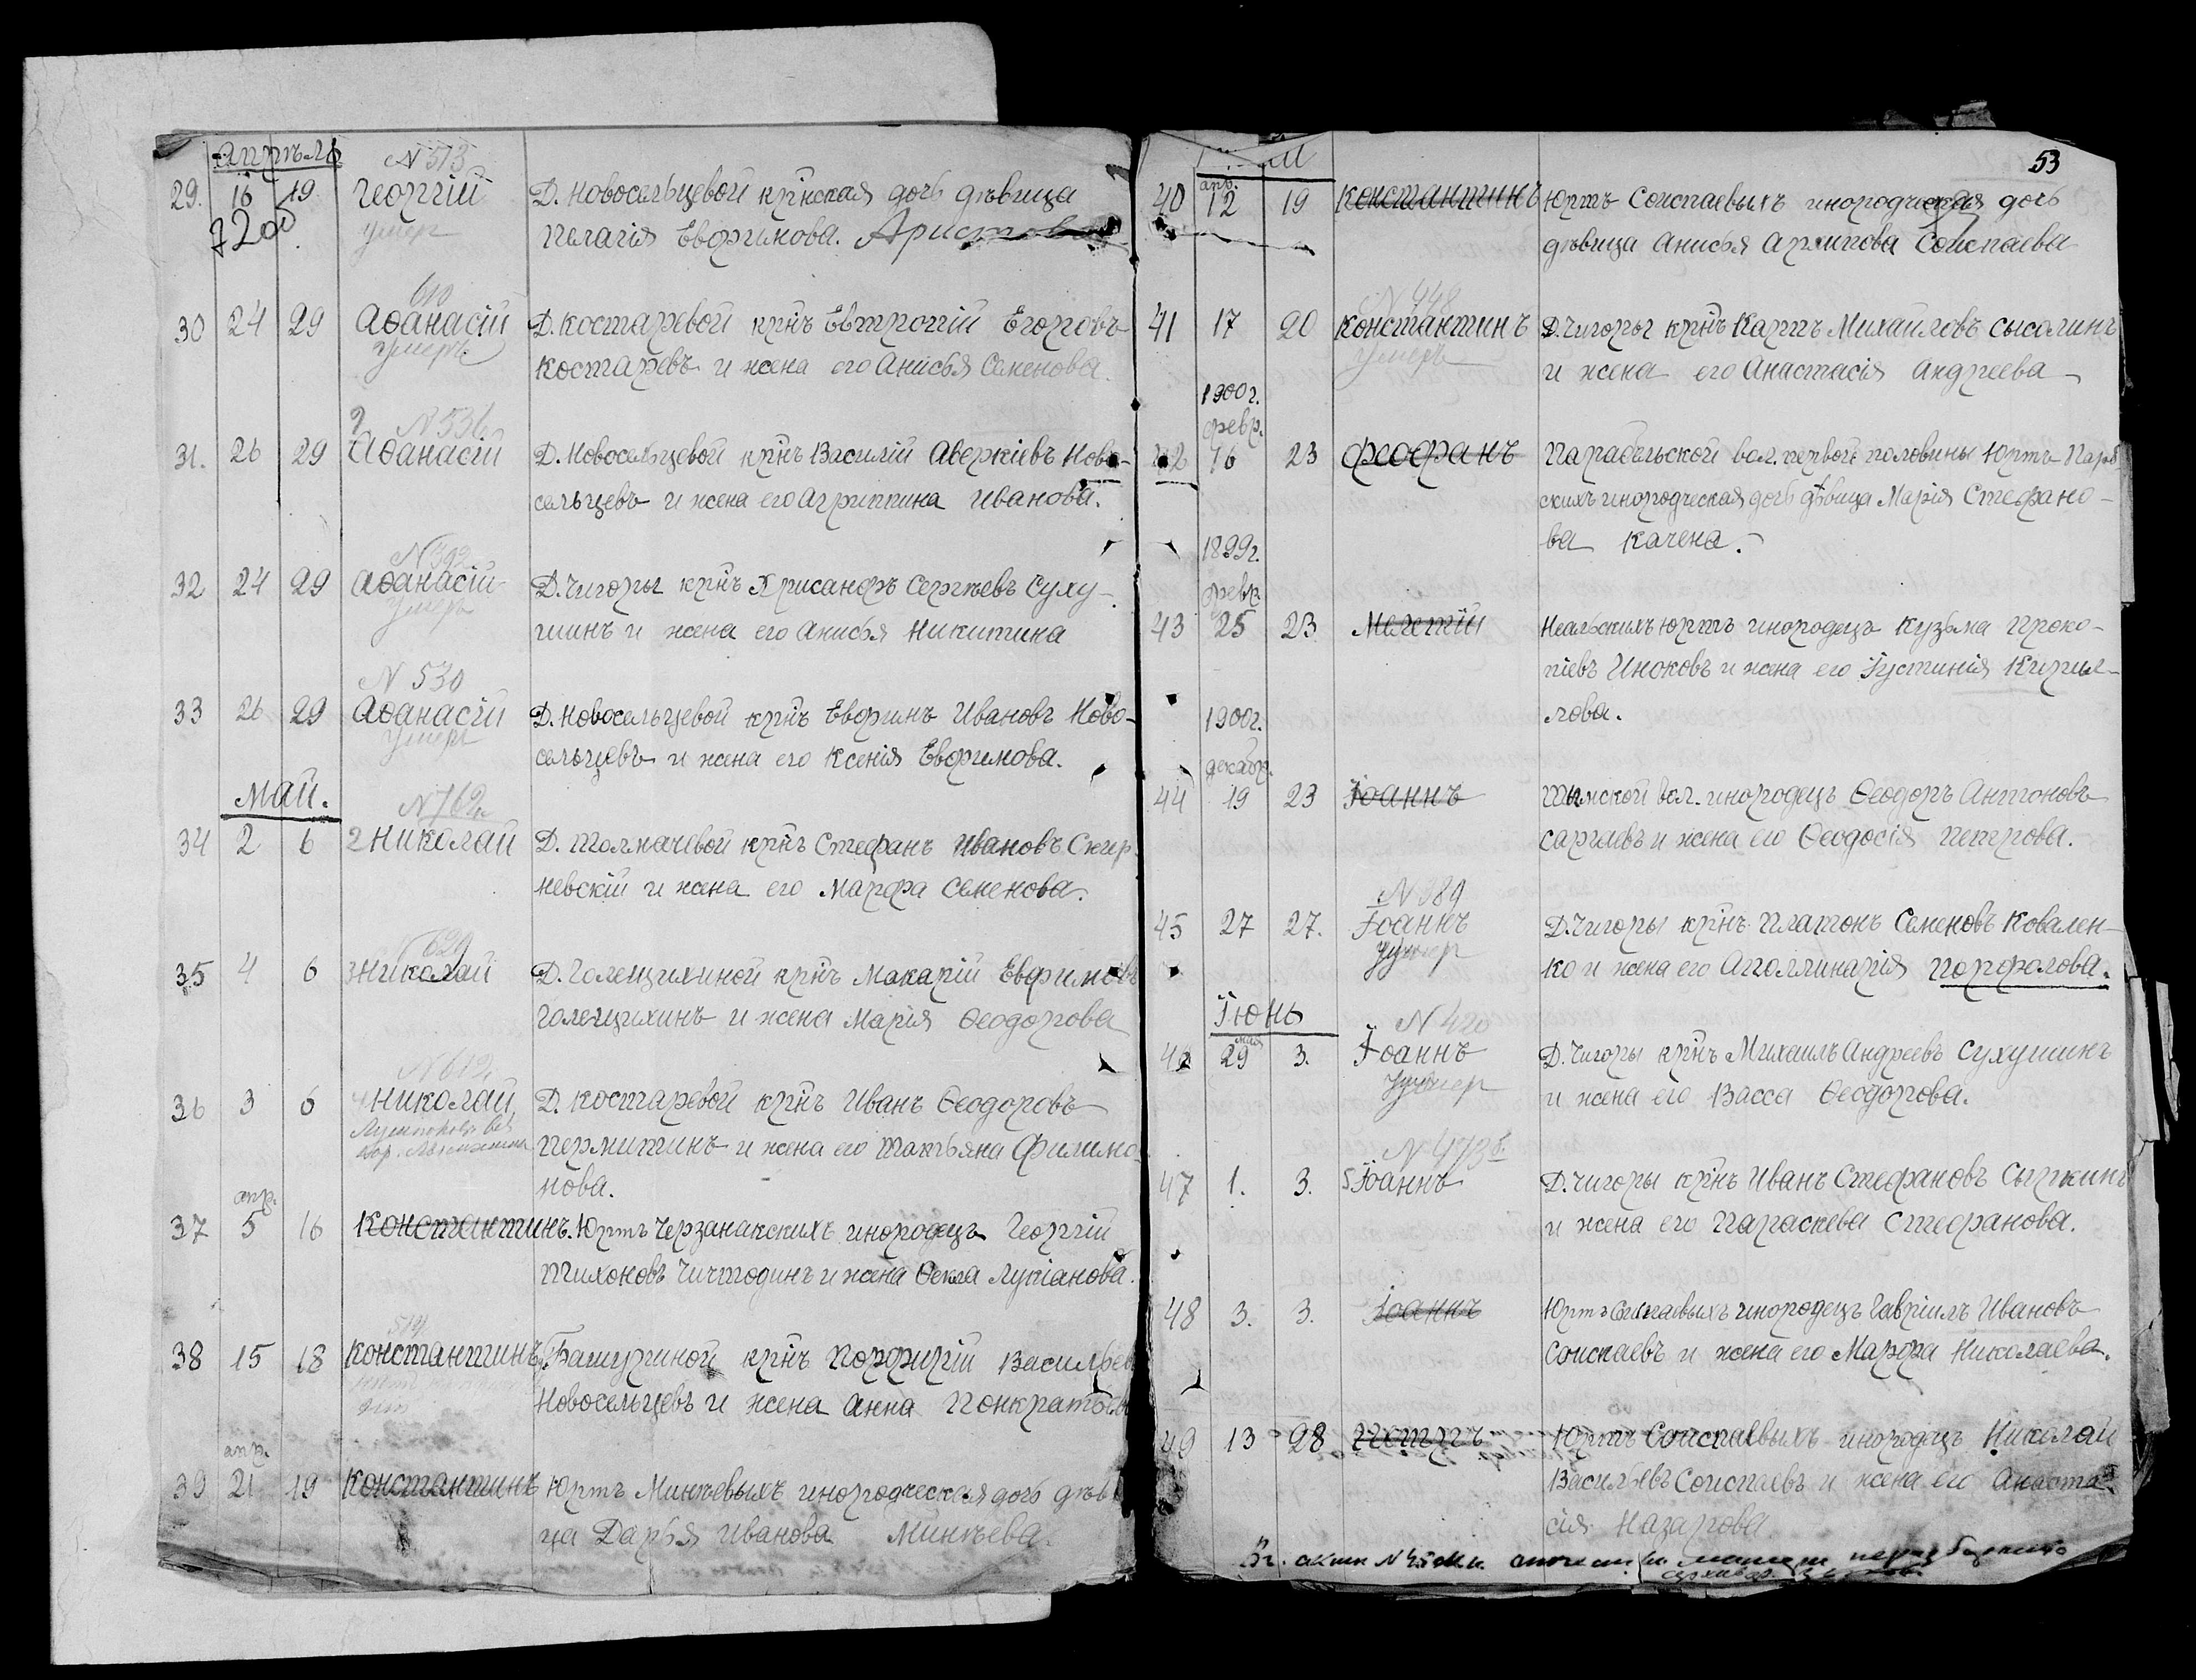 Апрѣль
N 513
29. 16 19. Георгій Д. Новосельцевой крнская дочь дѣвица
7200 умер Пелагія Евфимова.
610
30 24 29 Аѳанасій Д. Костаревой крнъ Евтропій Егоровъ
умеръ Костаревъ и жена его Анисья Семенова.
31. 26 29 Аѳанасій Д. Новосельцевой крнъ Василій Аверкіевъ Ново-
сельцевъ и жена его Агриппина Иванова.
32 24 29 Аѳанасій Д. Чигоры крнъ Хрисанфъ Сергѣевъ Суху-
умеръ шинъ и жена его Анисья Никитина
N 530
33 26 29 Аѳанасій Д. Новосельцевой крнъ Евфимъ Ивановъ Ново-
умеръ сельцевъ и жена его Ксенія Евфимова.
Май.
34 2 6 2 Николай Д. Толмачевой крнъ Стефанъ Ивановъ
невскій и жена его Марфа Семенова.
629
35 4 6 3 Николай Д. Голещихиной крнъ Макарій Евфимовъ
Голещихинъ и жена Марія Ѳеодорова
N 612
36 3 6 4 Николай Д. Костаревой крнъ Иванъ Ѳеодоровъ
Пермитинъ и жена его Татьяна Филимо-
нова.
апр.
37 5 16 Константинъ. Юртъ Чердзанакскихъ инородецъ Георгій
Тихоновъ и жена Ѳекла Лукіанова.
514
38 15 18 Константинъ Д. Башуриной крнъ Порфирій Васильев
Новосельцевъ и жена Анна Понкратова
апр.
39 21 19 Константинъ Юртъ Минѣевыхъ инородческая дочь дѣви
ца Дарья Иванова Минѣева.
53
апр.
40 12 19 Константинъ Юртъ Соиспаевыхъ инородческая дочь
дѣвица Анисья Архипова Соиспаева
N 448
41 17 20 Константинъ Д. Чигоры крнъ Карпъ Михайловъ Сысолинъ
умеръ и жена его Анастасія Андреева
1900 г.
февр.
42 16 23 Феофанъ Парабельской вол. первой половины Юртъ Параб
скихъ инородческая дочь дѣвица Марія Стефано-
ва Качена.
1899 г.
февр.
43 25 23. Мелетій Неальскихъ юртъ инородецъ Кузьма Проко-
піевъ Иноковъ и жена его Іустинія Кирил-
лова.
1900 г.
декабр.
44 19 23 Іоаннъ Тымской вол. инородецъ Ѳеодоръ Антоновъ
и жена его Ѳеодосія Петрова.
N 389
45 27 27. Іоаннъ Д. Чигоры крнъ Платонъ Семеновъ Ковален-
умер ко и жена его Аполлинарія Порфолова.
Іюнь
N 420
мая
46 29 3. Іоаннъ Д. Чигоры крнъ Михаилъ Андреевъ Сухушинъ
умер и жена его Васса Ѳеодорова.
47 1. 3. 5 Іоаннъ Д. Чигоры крнъ Иванъ Стефановъ Сыркинъ
и жена его Параскева Стефанова.
48 3. 3. Іоаннъ Юртъ Соиспаевыхъ инородецъ Гавріилъ Ивановъ
Соиспаевъ и жена его Марфа Николаева.
49 13 28 Петръ Юртъ Соиспаевыхъ инородецъ Николай
Васильевъ Соиспаевъ и жена его Анаста-
сія Назарова.